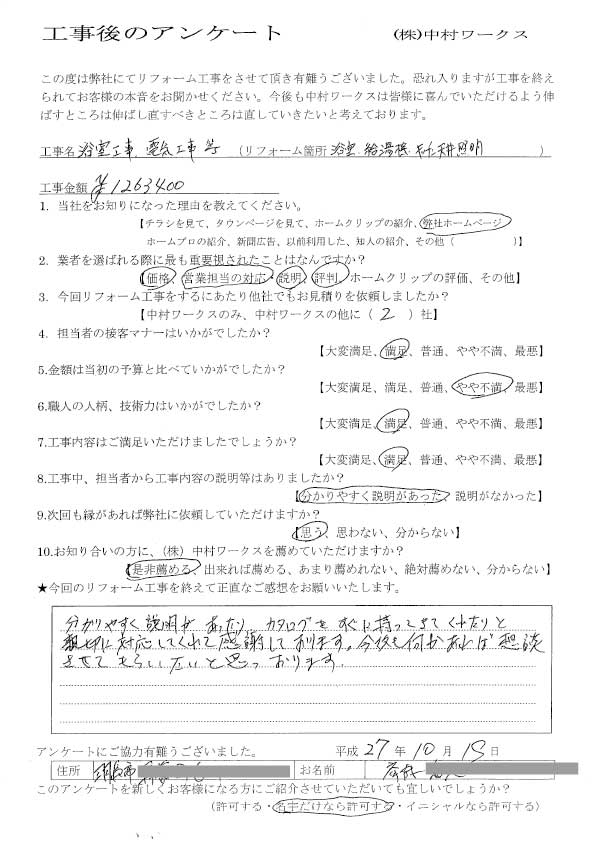 工事後のアンケート　(株)中村ワークス
この度は弊社にてリフォーム工事をさせて頂き有難うございました。恐れ入りますが工事を終え
られてお客様の本音をお聞かせください。今後も中村ワークスは皆様に喜んでいただけるよう伸
ばすところは伸ばし直すべきところは直していきたいと考えております。
工事名 浴室工事、電気工事 等　(リフォーム箇所 浴室 給湯器 照明　)
工事金額 ¥1263400
1．当社をお知りになった理由を教えてください。
【チラシを見て、タウンページを見て、ホームクリップの紹介、弊社ホームページ
ホームプロの紹介、新聞広告、以前利用した、知人の紹介、その他（　　）】
2．業者を選ばれる際に最も重要視されたことはなんですか？
【価格、営業担当の対応・説明、評判、ホームクリップの評価、その他】
3．今回リフォーム工事をするにあたり他社でもお見積りを依頼しましたか？
【中村ワークスのみ、中村ワークスの他に（ 2 ）社】
4．担当者の接客マナーはいかがでしたか？
【大変満足、満足、普通、やや不満、最悪】
5.金額は当初の予算と比べていかがでしたか？
【大変満足、満足、普通、やや不満、最悪】
6.職人の人柄、技術力はいかがでしたか？
【大変満足、満足、普通、やや不満、最悪】
7.工事内容はご満足いただけましたでしょうか？
【大変満足、満足、普通、やや不満、最悪】
8.工事中、担当者から工事内容の説明等はありましたか？
【分かりやすく説明があった、説明がなかった】
9.次回も縁があれば弊社に依頼していただけますか？
【思う、思わない、分からない】
10.お知り合いの方に、（株）中村ワークスを薦めていただけますか？
【是非薦める、出来れば薦める、あまり薦めれない、絶対薦めない、分からない】
★今回のリフォーム工事を終えて正直なご感想をお願いいたします。
分かりやすく説明があったり、カタログをすぐに持ってきてくれたりと
親切に対応してくれて感謝しております。今後も何かあれば相談
させてもらいたいと思っております。
アンケートにご協力有難うございました。　平成 27 年 10 月 19 日
住所　お名前
このアンケートを新しくお客様になる方にご紹介させていただいても宜しいでしょうか？
（許可する・名字だけなら許可する・イニシャルなら許可する）